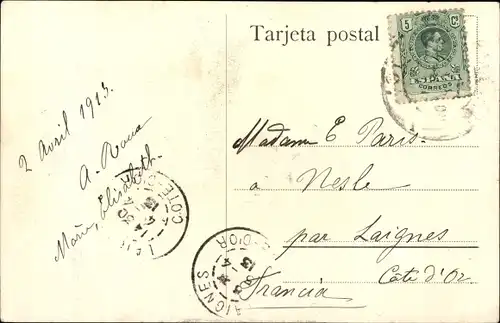 Tarjeta postal
5 Cs
ESPAÑA
CORREOS
2 Avril 1913.
A. Roua
Marie, Elisabeth.
Madame E Paris
à Nesle
par Laignes
Côte d'Or.
Francia
AIGNES
D'OR
COTE